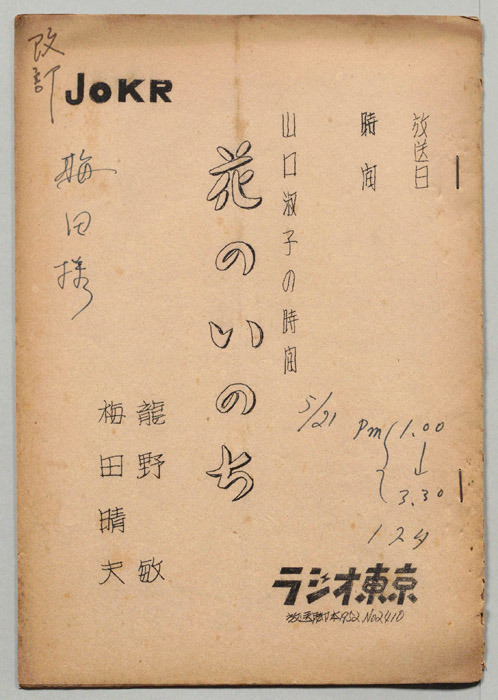 放送日
時間
山口淑子の時間
花のいのち
龍野敏
梅田晴夫
改訂
JOKR
梅田様
5/21
Pm 1.00
↓
3.30
ラジオ東京
放送脚本1952 No2410